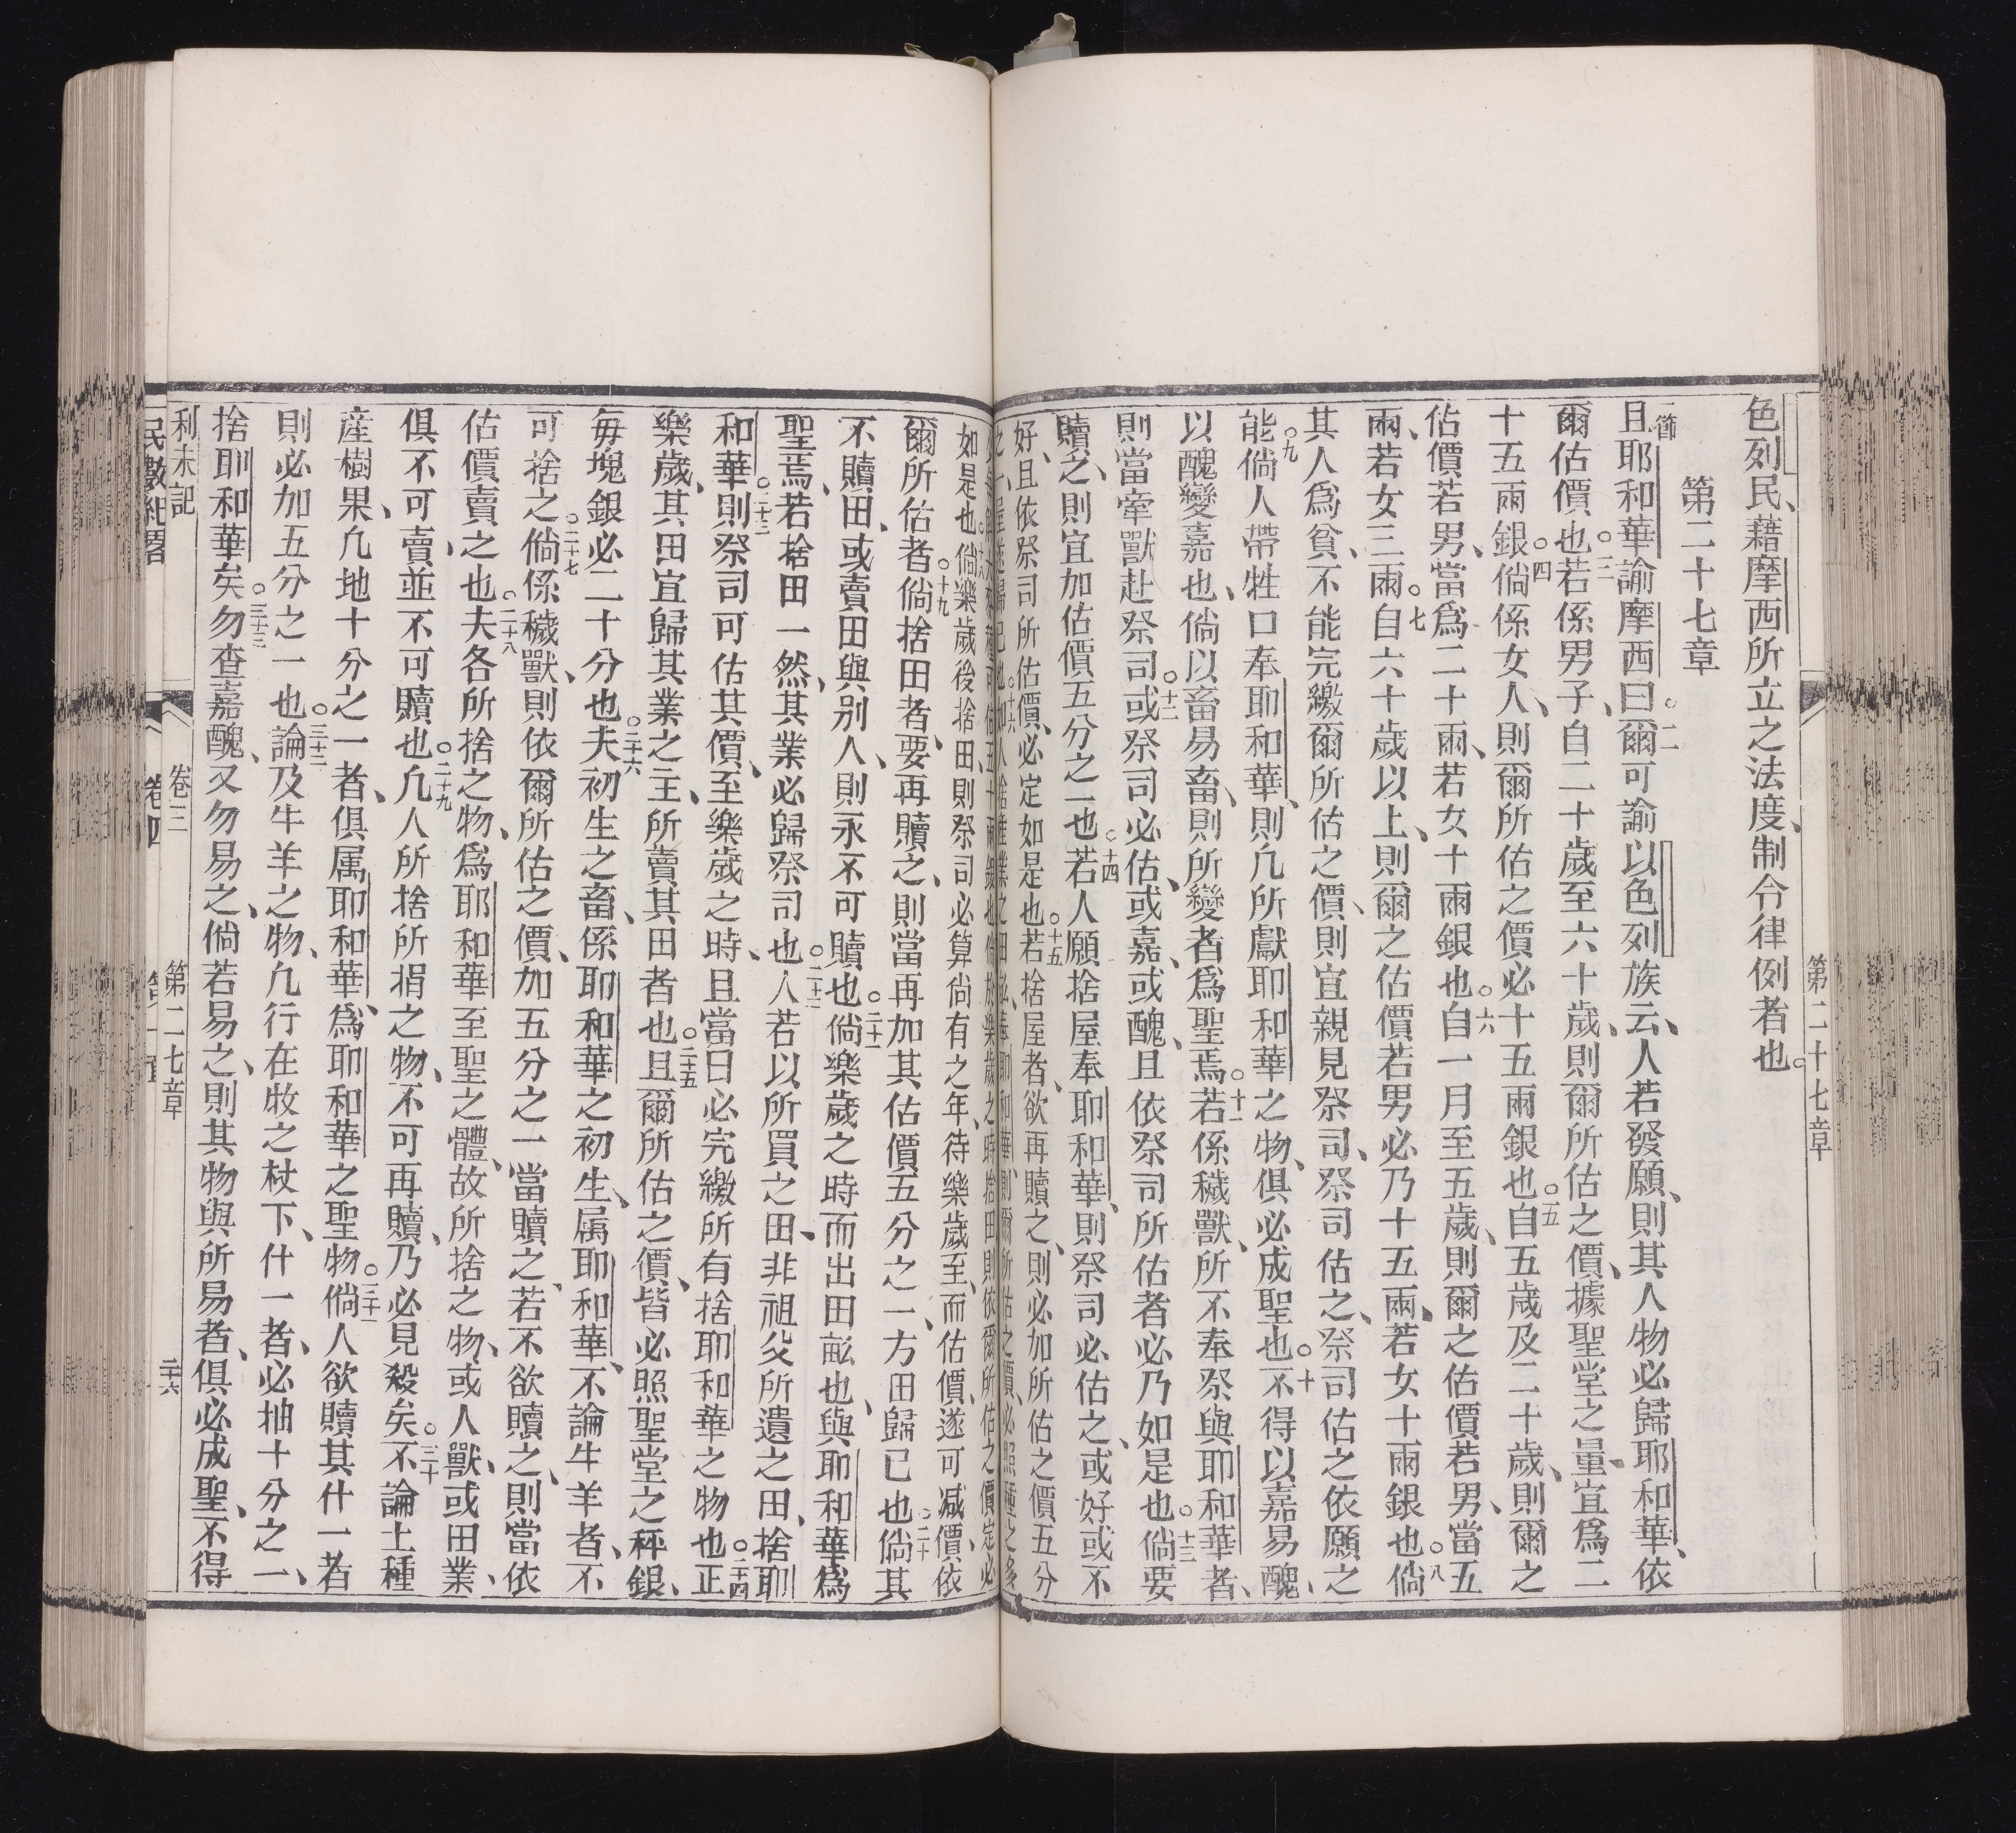 第二十七章
色列民、藉摩西所立之法度、制令律例者也。
第二十七章
節一且耶和華諭摩西曰。二爾可諭以色列族云、人若發願、則其人物必歸耶和華、依
爾估價也。三若係男子、自二十歲至六十歲、則爾所估之價、據聖堂之量宜爲二
十五兩銀。四倘係女人、則爾所估之價必十五兩銀也。五自五歲及二十歲、則爾之
估價若男、當爲二十兩、若女十兩銀也。六自一月至五歲、則爾之估價若男、當五
兩、若女三兩。七自六十歲以上、則爾之估價若男必乃十五兩、若女十兩銀也。八倘
其人爲貧、不能完繳爾所估之價、則宜親見祭司、祭司估之、祭司估之依願之
能。九倘人帶牲口奉耶和華、則凢所獻耶和華之物、俱必成聖也。十不得以嘉易醜、
以醜變嘉也、倘以畜易畜、則所變者爲聖焉。十一若係穢獸、所不奉祭與耶和華者、
則當牽獸赴祭司。十二或祭司必估、或嘉、或醜、且依祭司所估者必乃如是也。十三倘要
贖之、則宜加估價五分之一也。十四若人願捨屋奉耶和華、則祭司必估之、或好或不
好、且依祭司所估價、必定如是也。十五若捨屋者、欲再贖之、則必加所估之價五分
之一、屋遂歸已也。十六如人捨產業之田畝、奉耶和華、則爾所估之價、必照種之多
於樂歲之時捨田、則依爾所估之價定必
如是也。十八倘樂歲後捨田、則祭司必算尚有之年、待樂歲至、而估價、遂可減價、依
爾所估者。十九倘捨田者、要再贖之、則當再加其估價五分之一、方田歸已也。二十倘其
不贖田、或賣田與别人、則永不可贖也。二十一倘樂歲之時而出田畝也、與耶和華爲
聖焉、若捨田一然、其業必歸祭司也。二十二人若以所買之田、非祖父所遺之田、捨耶
和華。二十三則祭司可估其價、至樂歲之時、且當日必完繳所有捨耶和華之物也。二十四正
樂歲、其田宜歸其業之主、所賣其田者也。二十五且爾所估之價、皆必照聖堂之秤銀、
每塊銀必二十分也。二十六夫初生之畜、係耶和華之初生、属耶和華、不論牛羊者、不
可捨之。二十七倘係穢獸、則依爾所估之價、加五分之一當贖之、若不欲贖之、則當依
估價賣之也。二十八夫各所捨之物、爲耶和華至聖之體、故所捨之物、或人、獸、或田業、
俱不可賣、並不可贖也。二十九凢人所捨所捐之物、不可再贖、乃必見殺矣。三十不論土種
產樹果、凢地十分之一者、俱属耶和華、爲耶和華之聖物。三十一倘人欲贖其什一者
則必加五分之一也。三十二論及牛羊之物、凢行在牧之杖下、什一者、必抽十分之一、
捨耶和華矣。三十三勿查嘉醜、又勿易之、倘若易之、則其物與所易者、俱必成聖、不得
利未記　卷三　第二七章　二十六
民數紀畧　卷四